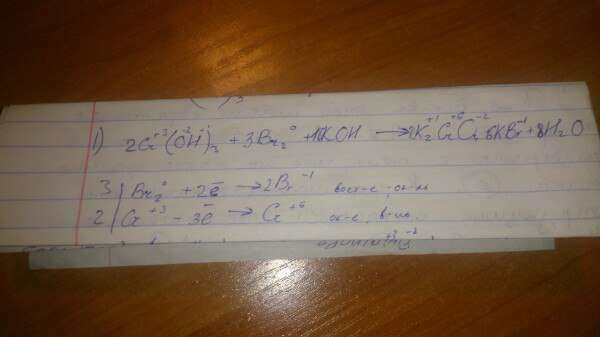 1) 2Cr⁺³(O⁻²H⁺)₃ + 3Br₂⁰ + 10KOH → 2K₂⁺¹Cr⁺⁶O₄⁻² 6KBr⁻¹ + 8H₂O
3 | Br₂⁰ + 2ē → 2Br⁻¹ восст-е, ок-ль
2 | Cr⁺³ - 3ē → Cr⁺⁶ ок-е, в-ль